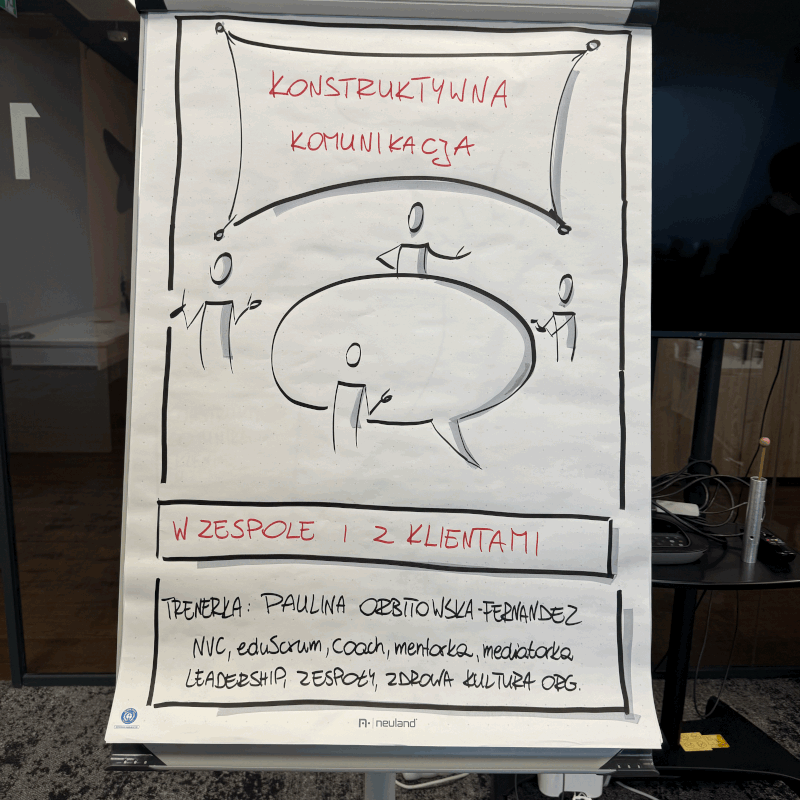 KONSTRUKTYWNA
KOMUNIKACJA
W ZESPOLE I Z KLIENTAMI
TRENERKA: PAULINA ORBITOWSKA-FERNANDEZ
NVC, eduScrum, Coach, mentorka, mediatorka
LEADERSHIP, ZESPOŁY, ZDROWA KULTURA ORG.
neuland
1